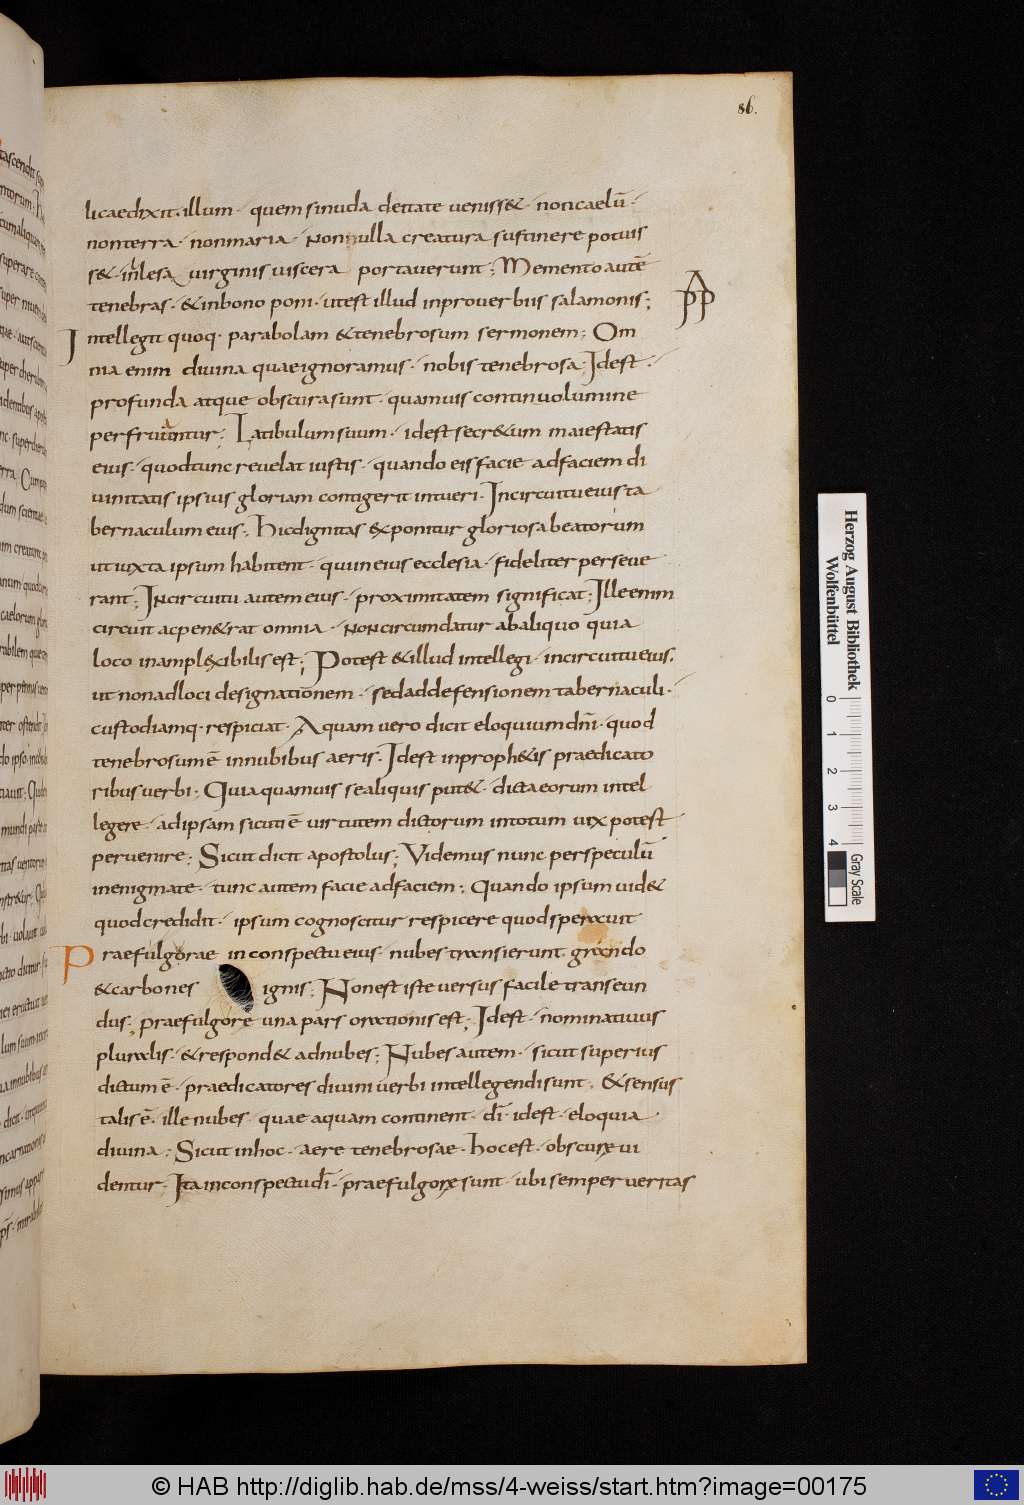 86.
licaedixit. illum · quem sinuda deitate uenisset · non caelū ·
non terra · non maria · Non nulla creatura sustinere potuis
set · inlesa uirginis uiscera portauerunt; Memento autē
tenebras · & in bono poni · ut est illud in prouerbiis salamonis;
PP
Intellegit quoq· parabolam & tenebrosum sermonem; Om
nia enim diuina quae ignoramus · nobis tenebrosa; Idest ·
profunda atque obscura sunt · quamuis continuo lumine
perfruuntur; Latibulum suum · idest secretum maiestatis
eius · quod tunc reuelat iustis · quando eis facie ad faciem di
uinitatis ipsius gloriam contigerit intueri · In circuitu eius ta
bernaculum eius; Hic dignitas exponitur gloriosa beatorum
ut iuxta ipsum habitent · qui in eius ecclesia · fideliter perseue
rant; In circuitu autem eius · proximitatem significat; Ille enim
circuit ac penetrat omnia · Non circumdatur ab aliquo quia
loco inamplexibilis est; Potest & illud intellegi · in circuitu eius.
ut non ad loci designationem · sed ad defensionem tabernaculi ·
custodiamq· respiciat · Aquam uero dicit eloquium dn̄i · quod
tenebrosum ē in nubibus aeris · Idest in prophetis praedicato
ribus uerbi · Quia quamuis se aliquis putet · dicta eorum intel
legere · ad ipsam sicuti ē uirtutem dictorum in totum uix potest
peruenire; Sicut dicit apostolus; Videmus nunc per speculū
in enigmate · tunc autem facie ad faciem; Quando ipsum uidet
quod credidit · ipsum cognoscitur respicere quod sperauit
Praefulgorae in conspectu eius · nubes transierunt. grando
& carbones ignis; Non est iste uersus facile transeun
dus; praefulgore una pars orationis est; Idest · nominatiuus
pluralis · & respondet ad nubes; Nubes autem · sicut superius
dictum ē · praedicatores diuini uerbi intellegendi sunt; & sensus
talis ē · ille nubes · quae aquam continent · dī · idest · eloquia
diuina; Sicut in hoc · aere tenebrosae · hoc est · obscurae ui
dentur; Ita in conspectu dī · praefulgorae sunt · ubi semper ueritas
Herzog August Bibliothek
Wolfenbüttel
0 1 2 3 4
Gray Scale
© HAB http://diglib.hab.de/mss/4-weiss/start.htm?image=00175